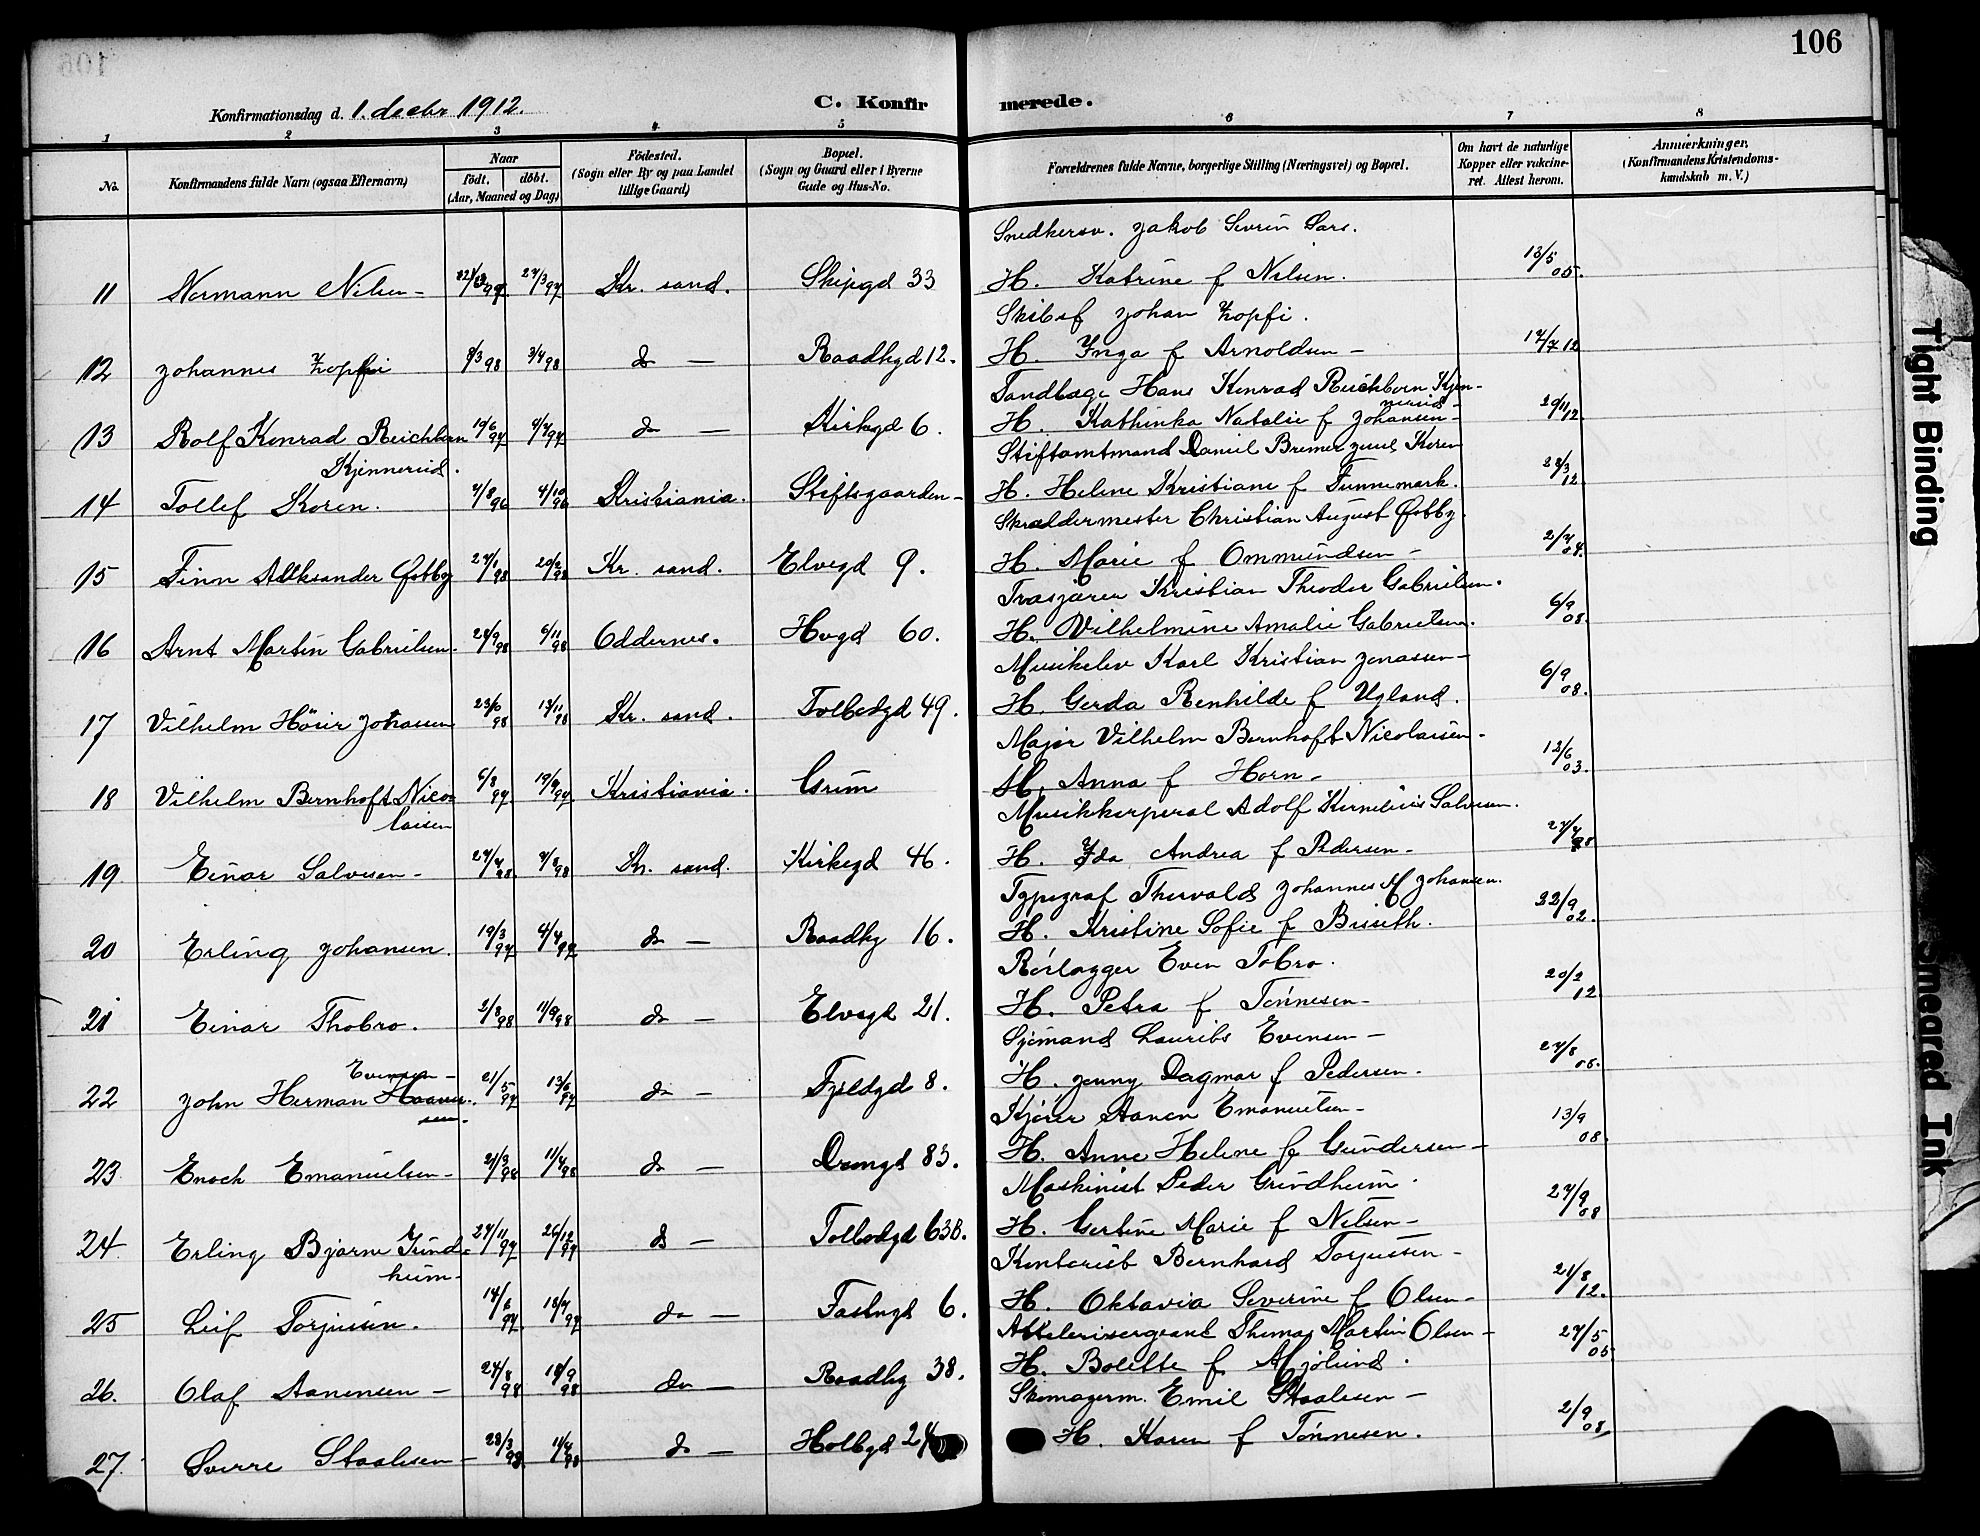 106
Konfirmationsdag d. 1. decbr 1912.
C. Konfirmerede.
1 2 3 4 5 6 7 8
No.
Konfirmandens fulde Navn (ogsaa Efternavn)
Naar
født. døbt.
(Aar, Maaned og Dag)
Fødested.
(Sogn eller By og paa Landet
tillige Gaard)
Bopæl.
(Sogn og Gaard eller i Byerne
Gade og Hus-No.
Forældrenes fulde Navne, borgerlige Stilling (Næringsvei) og Bopæl.
Om havt de naturlige
Kopper eller vakcine-
ret. Attest herom.
Anmærkninger.
(Konfirmandens Kristendoms-
kundskab m. V.)
Snedkersv. Jakob Sevrin Lars.
11 Normann Nilsen - 27/3 97 Kr. sand. Skipgd 33 H. Katrine f Nilsen. 13/5 05.
Skibsf Johan Zopfi.
12 Johannes Zopfi 8/3 98 3/4 98 do — Raadhgd 12. H. Inga f Arnoldsen - 17/7 12
Tandlæge Hans Konrad Reichborn Kjen-
nerud-
13 Rolf Konrad Reichborn 19/6 97 do — Kirkegd 6. H. Kathinka Natalie f Johansen - 29/11 12
Kjennerud.
Stiftamtmand Daniel Bremer Juul Koren
14 Tollef Koren. 7/8 96 4/10 96 Kristiania. Stiftsgaarden- H. Helene Kristiane f Tunnemark. 28/3 12.
Skræddermester Christian August Østby.
15 Finn Aleksander Østby 27/1 98 20/2 98 Kr. sand. Elvegd 9. H. Marie f Ommundsen - 2/7 04.
Kristian Theodor Gabrielsen.
16 Arnt Martin Gabrielsen. 24/9 98 6/11 98 Oddernes. Hvgd 60. H. Vilhelmine Amalie Gabrielsen. 6/9 08.
Musikelev Karl Kristian Jonassen-
17 Vilhelm Hösir Johassen 23/6 98 13/11 98 Kr. sand. Tolbodgd 49. H. Gerda Renhilde f Ugland. 6/9 08.
Major Vilhelm Bernhoft Nicolaisen-
18 Vilhelm Bernhoft Nico- 6/8 97. 19/9 97. Kristiania. Grim H. Anna f Horn- 12/6 03.
laisen
Musikkorporal Adolf Kornelius Salvesen.
19 Einar Salvesen - 27/4 98. 7/8 98 Kr. sand. Kirkegd 46. H. Ida Andrea f Pedersen- 98
Typograf Thorvald Johannes M Johansen.
20 Erling Johansen. 19/3 97 4/4 97 do — Raadhg 16. H. Kristine Sofie f Briseth. 22/9 02.
Rörlægger Even Tobro.
21 Einar Thobro. 2/8 98 11/9 98 do — Elvegd 21. H. Petra f Tönnesen - 20/2 12.
Evensen -
Sjömand Laurits Evensen -
22 John Herman Haaver- 21/5 97 13/6 97 do — Fjeldgd 8. H. Jenny Dagmar f Pedersen. 27/8 05.
sen.
Kjörer Aanen Emanuelsen-
23 Enoch Emanuelsen- 21/3 98 11/4 98 do — Drongd 83. H. Anne Helene f Gundersen- 13/9 08.
Maskinist Peder Grindheim.
24. Erling Bjarne Grind- 27/11 97 26/12 97 do — Tolbodgd 63B. H. Gertine Marie f Nilsen- 27/9 08
heim-
Kontorist Bernhard Torjussen-
25 Leif Torjussen. 14/6 97. 18/7 97 do — Fastngd 6. H. Oktavia Severine f Olsen- 21/8 12.
Attelerisergeant Thomas Martin Olsen-
26. Olaf Aanensen - 24/8 98 18/9 98 do — Raadhg 38. H. Bolette f Mjölund. 27/5 05
Skomagerm. Emil Staalesen -
27. Sverre Staalesen - 28/3 98. 11/4 98 do — Holbgd 24 H. Karen f Tönnesen. 2/9 08.
Tight Binding
Smeared Ink